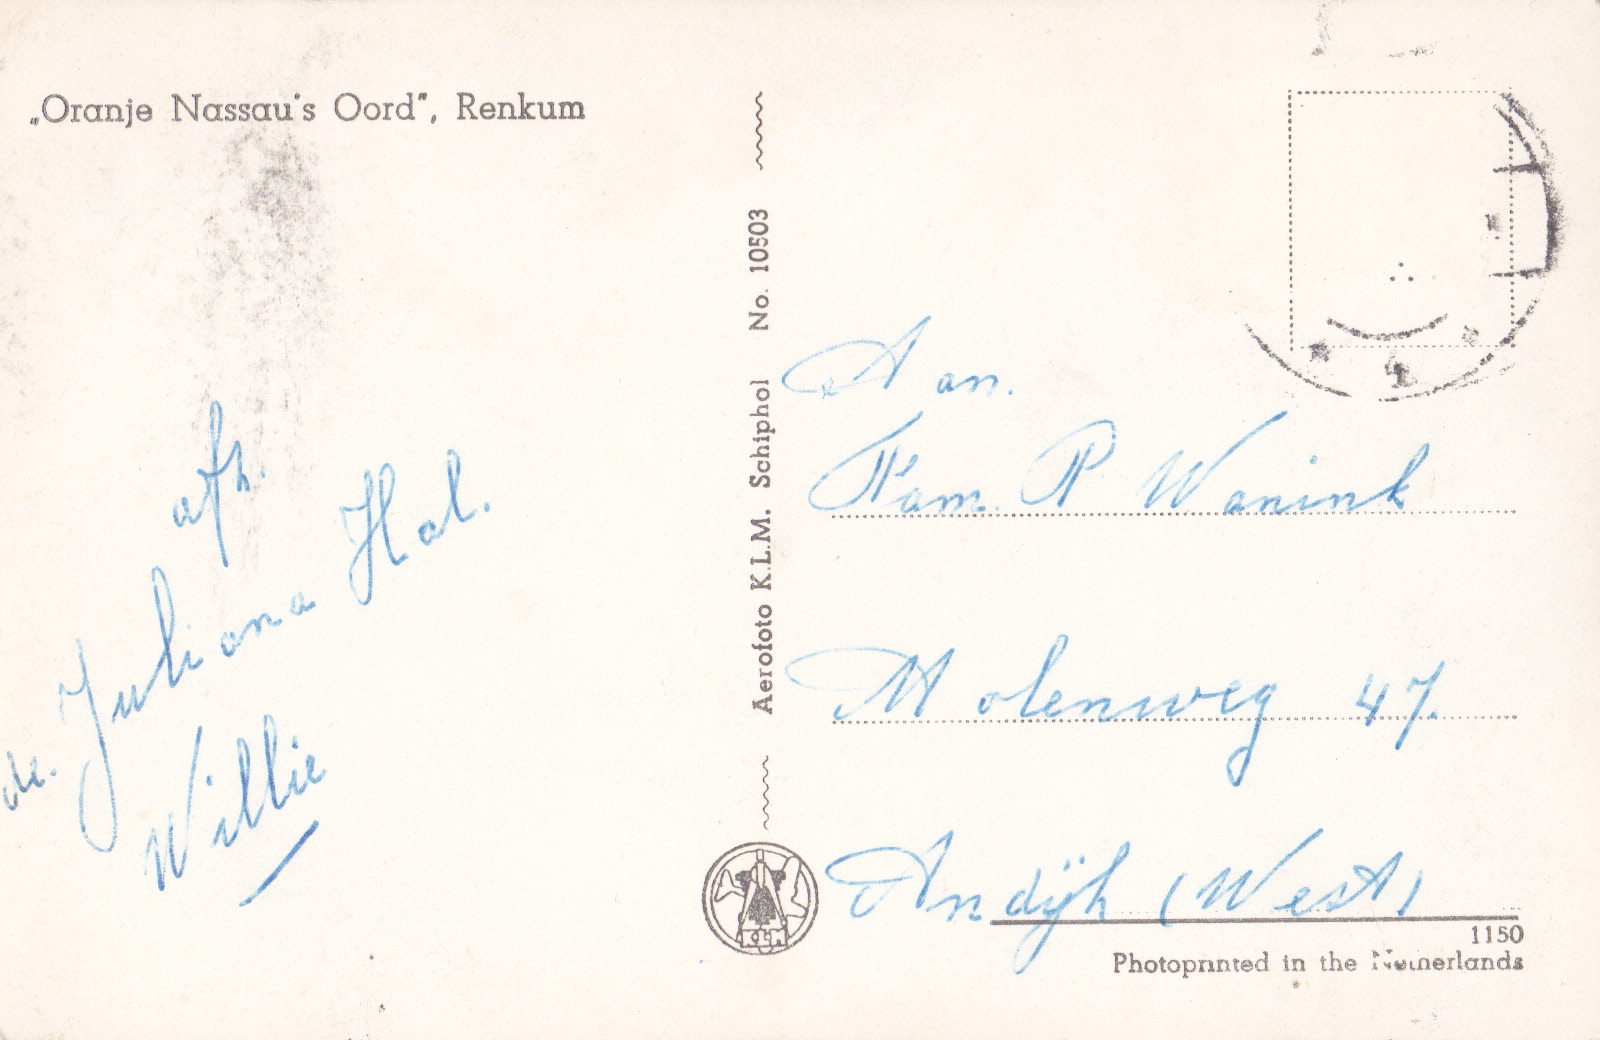 „Oranje Nassau's Oord", Renkum
afz.
Juliana Hal.
de.
Willie
Aerofoto K.L.M. Schiphol No. 10503
Aan.
Fam. P. Wanink
Molenweg 47.
Andijk (West)
1150
Photoprinted in the Netherlands